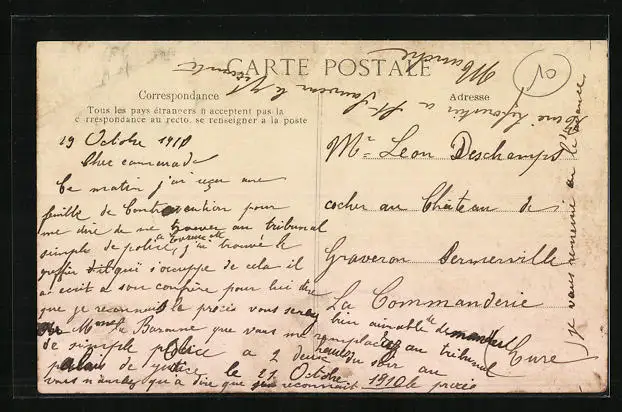 CARTE POSTALE
Correspondance
Tous les pays étrangers n acceptent pas la
c rrespondance au recto. se renseigner a la poste
Adresse
19 Octobre 1910
Cher camarade
Ce matin j'ai reçu une
feuille de Contravention pour
me dire de me trouver au tribunal
simple de police, j'ai trouvé le
greffier qui s'occupe de cela il
a écrit a son confrère pour lui dire
que je reconnais le procès vous serez
bien aimable de demander
Mme la Baronne que vous me remplacez au tribunal
de simple police a 2 heures du soir au
palais de justice le 21 Octobre 1910
vous n'aurez qu'a dire que je reconnait le procès
Mr Leon Deschamps
cocher au Château de
Graveron Sermerville
La Commanderie
(Eure)
je vous remercie
Manche